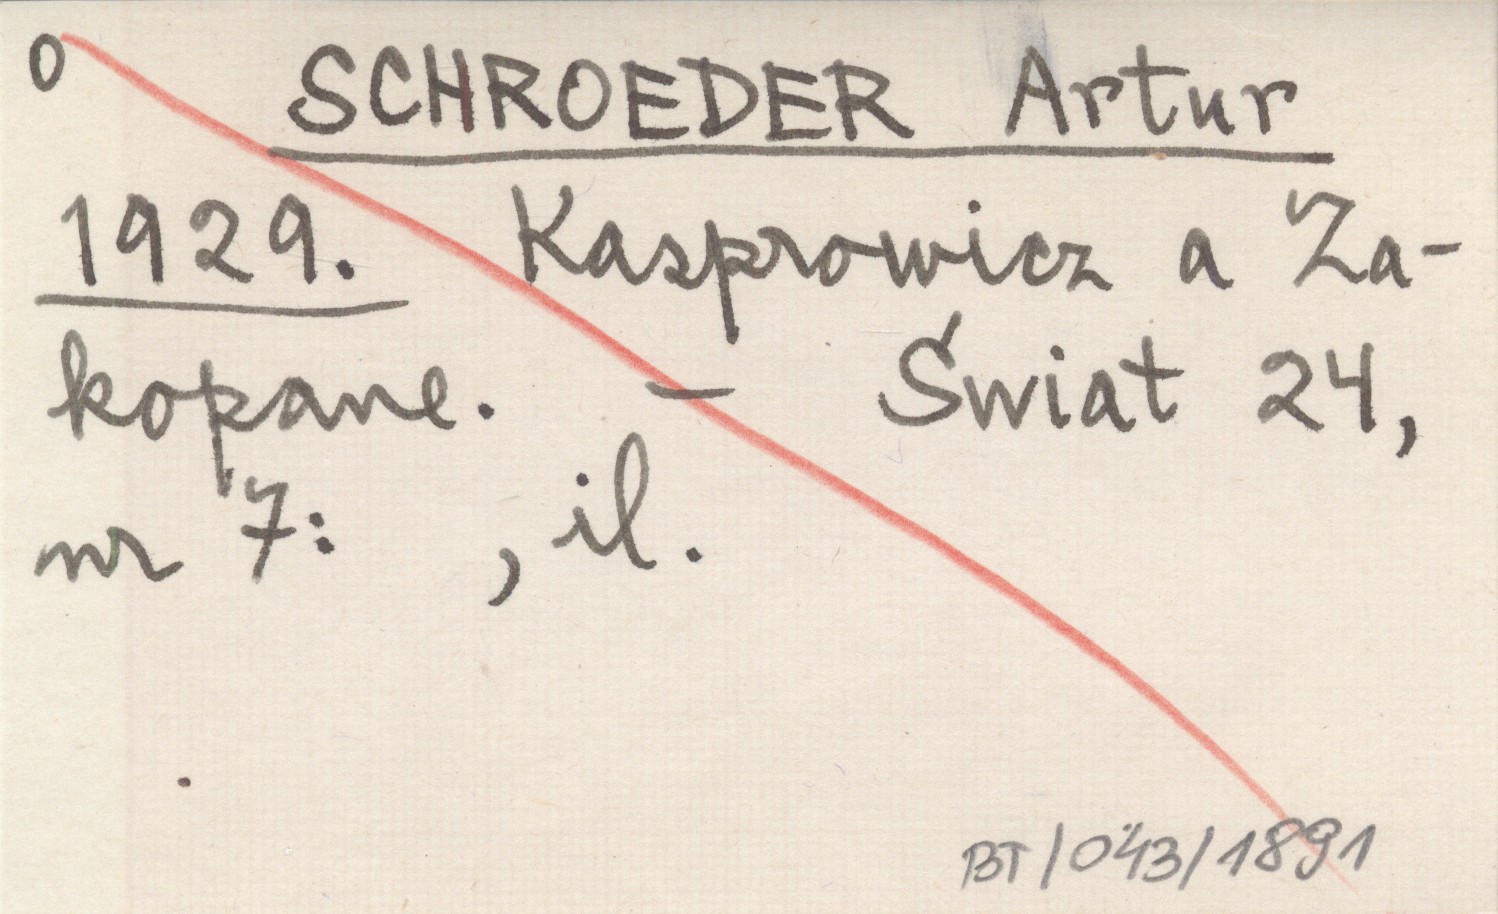 o SCHROEDER Artur
1929. Kasprowicz a Za-
kopane. – Świat 24,
nr 7: , il.
BT/043/1891